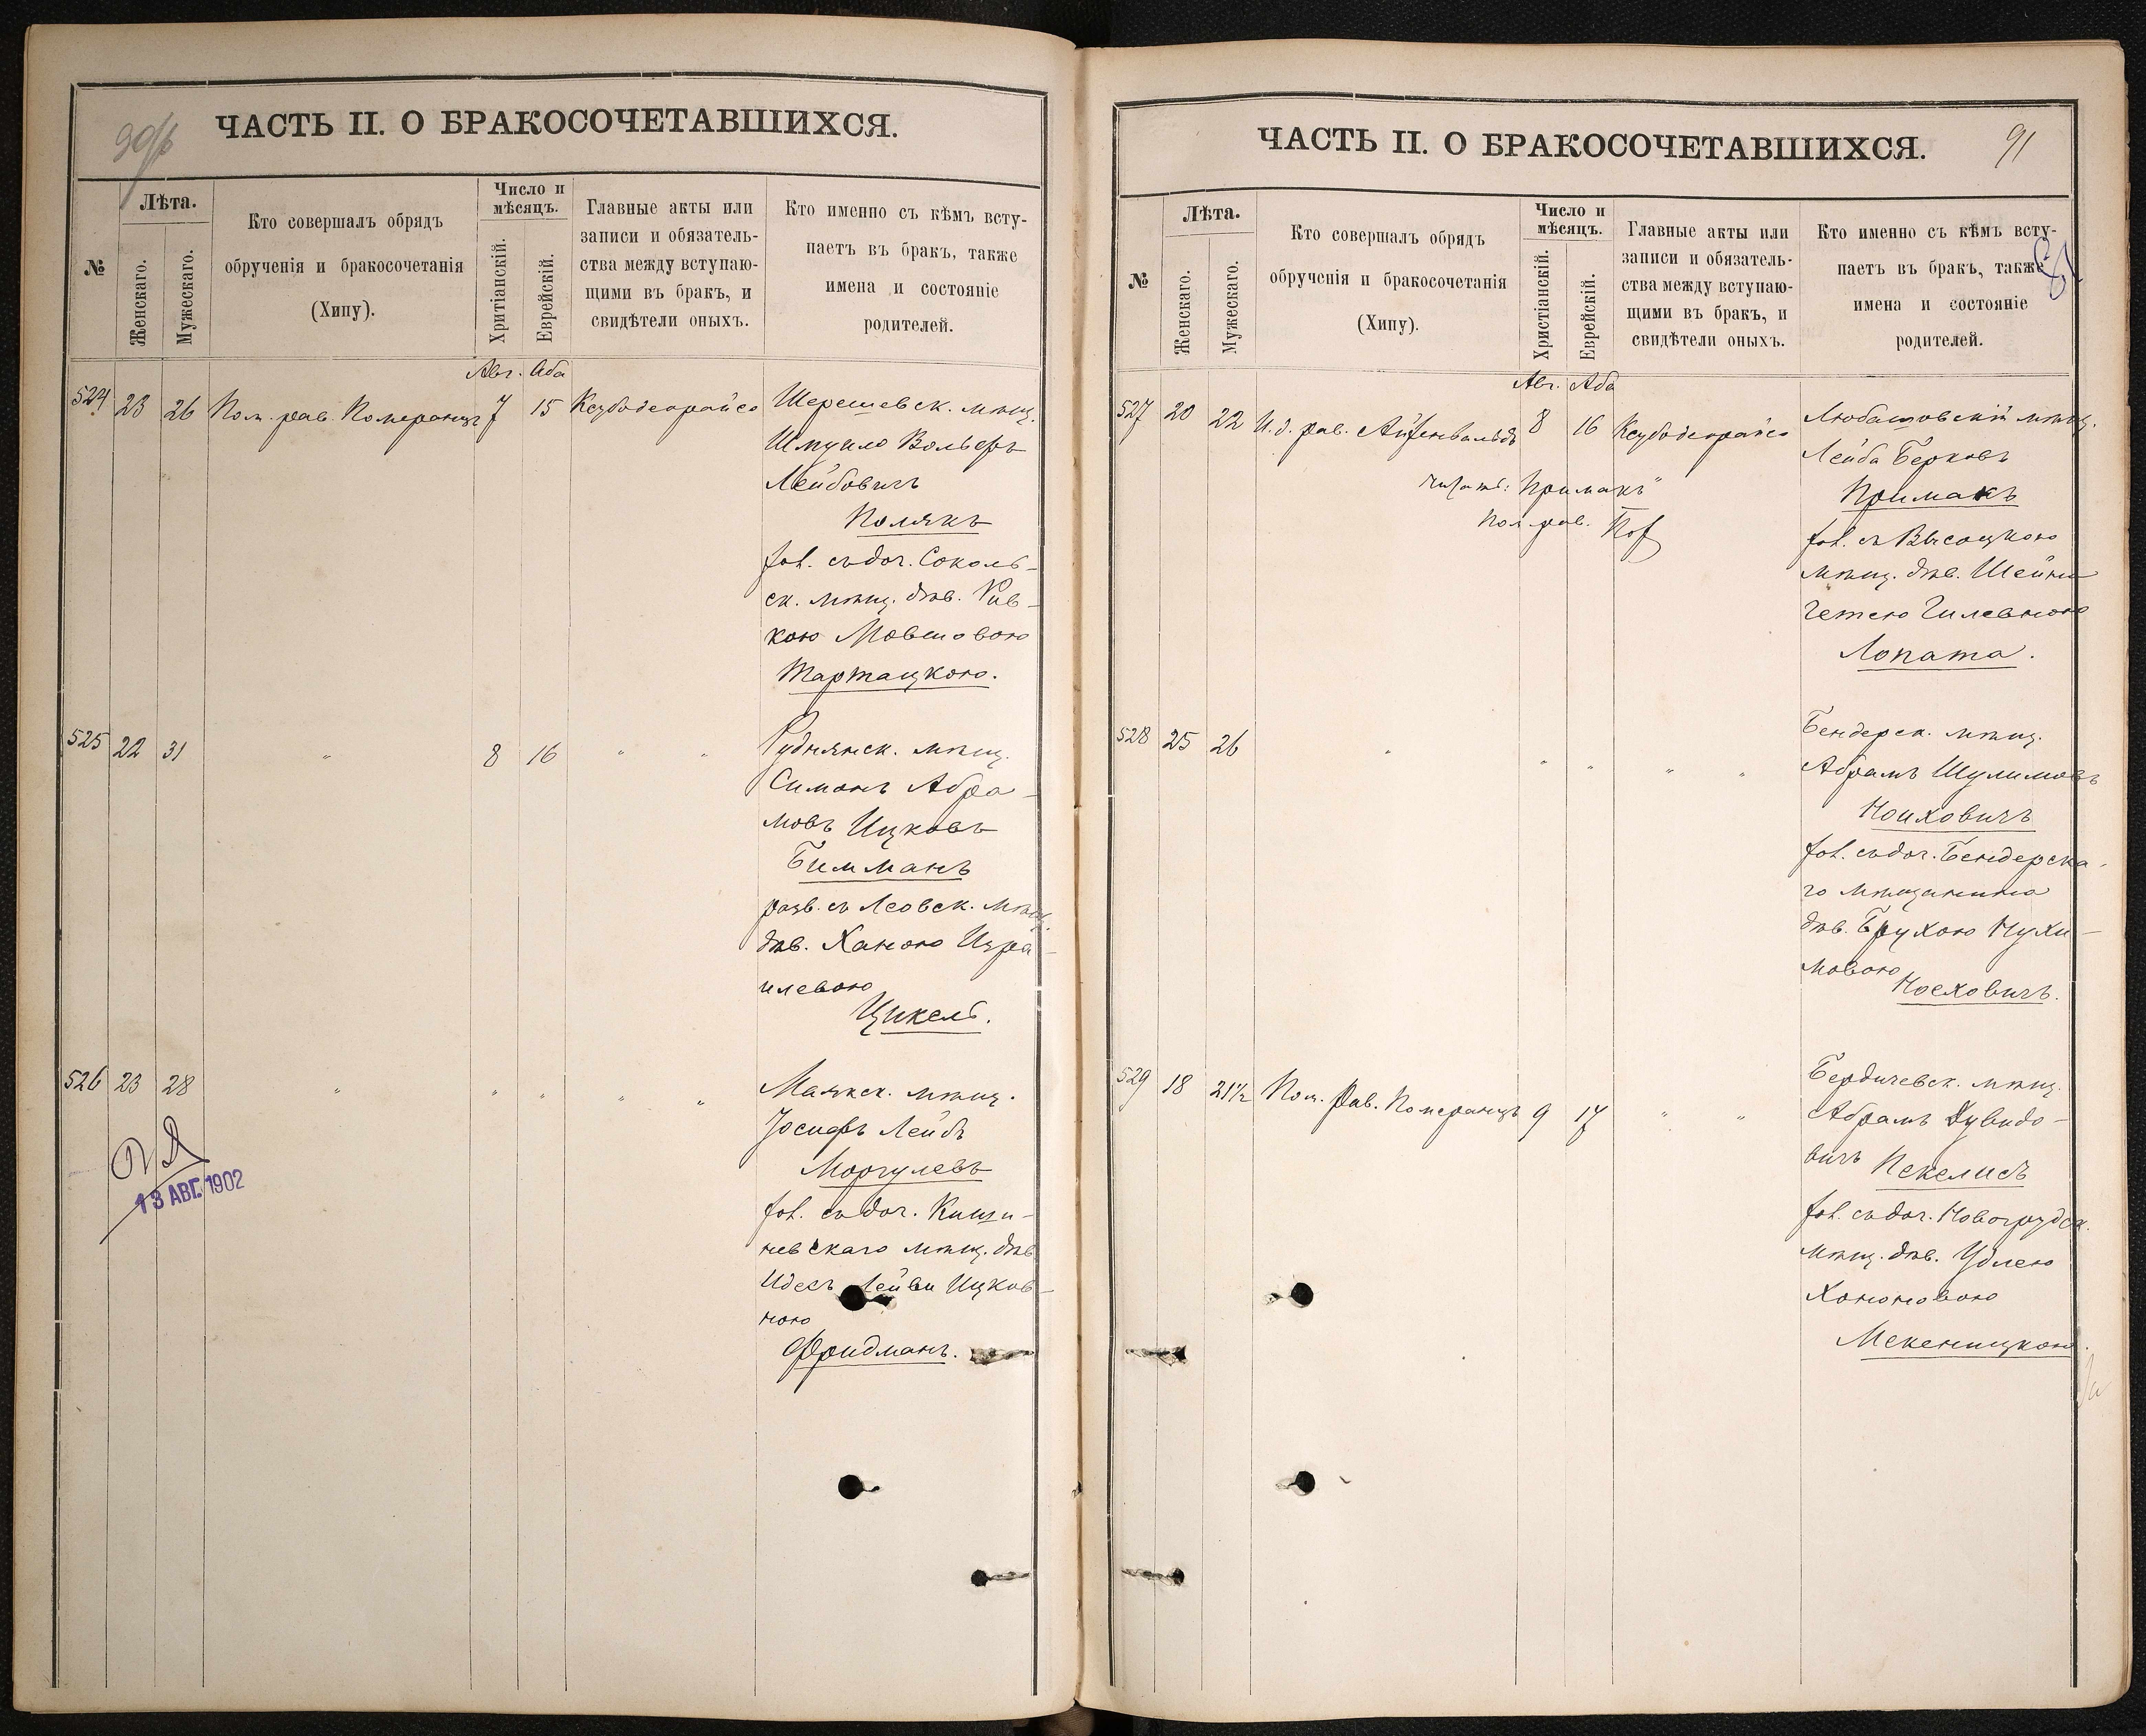 ЧАСТЬ II. О БРАКОСОЧЕТАВШИХСЯ.
№
Лѣта.
Женскаго.
Мужескаго.
Кто совершалъ обрядъ
обрученія и бракосочетанія
(Хипу).
Число и
мѣсяцъ.
Хритіанскій.
Еврейскій.
Главные акты или
записи и обязатель-
ства между вступаю-
щими въ бракъ, и
свидѣтели оныхъ.
Кто именно съ кѣмъ всту-
паетъ въ бракъ, также
имена и состояніе
родителей.
Авг. Аба
524 23 26 Пом. рав. Померанцъ 7 15 Ксубодеорайсо Шерешевск. мѣщ.
Шмуило Вольфъ
Лейбовичъ
Полякъ
хол. съ доч. Соколь-
ск. мѣщ. дѣв. Рив-
кою Мовшовою
Тартацкою.
525 22 31 " 8 16 " " Руднянск. мѣщ.
Симонъ Абра-
мовъ Ицковъ
Битманъ
разв. съ Леовск. мѣщ.
дѣв. Ханою Изра-
илевою
Цикель.
526 23 28 " " " " " Маякск. мѣщ.
Іосифъ Лейбъ
Моргулевъ
хол. съ доч. Киши-
невскаго мѣщ. дѣв
Идесъ Лейви Ицков-
ною
Фридманъ.
13 АВГ. 1902
ЧАСТЬ II. О БРАКОСОЧЕТАВШИХСЯ.
91
№
Лѣта.
Женскаго.
Мужескаго.
Кто совершалъ обрядъ
обрученія и бракосочетанія
(Хипу).
Число и
мѣсяцъ.
Христіанскій.
Еврейскій.
Главные акты или
записи и обязатель-
ства между вступаю-
щими въ бракъ, и
свидѣтели оныхъ.
Кто именно съ кѣмъ всту-
паетъ въ бракъ, также
имена и состояніе
родителей.
Авг. Аба
527 20 22 И.д. рав. Айзенвальдъ 8 16 Ксубодеорайсо Любашовскій мѣщ.
Лейба Берковъ
читать: Примакъ"
Примакъ
Пом. рав.
хол. съ Высоцкою
мѣщ. дѣв. Шейна
Гетею Гилевною
Лопата.
528 25 26 " " " " " Бендерск. мѣщ.
Абрамъ Шулимовъ
Ноиховичъ
хол. съ доч. Бендерска-
го мѣщанина
дѣв. Брухою Нухи-
мовою
Ноеховичъ.
529 18 21½ Пом. Рав. Померанцъ 9 17 " " Бердичевск. мѣщ.
Абрамъ Дувидо-
вичъ Пекелисъ
хол. съ доч. Новогрудск.
мѣщ. дѣв. Удлею
Хононовою
Мекеницкою.